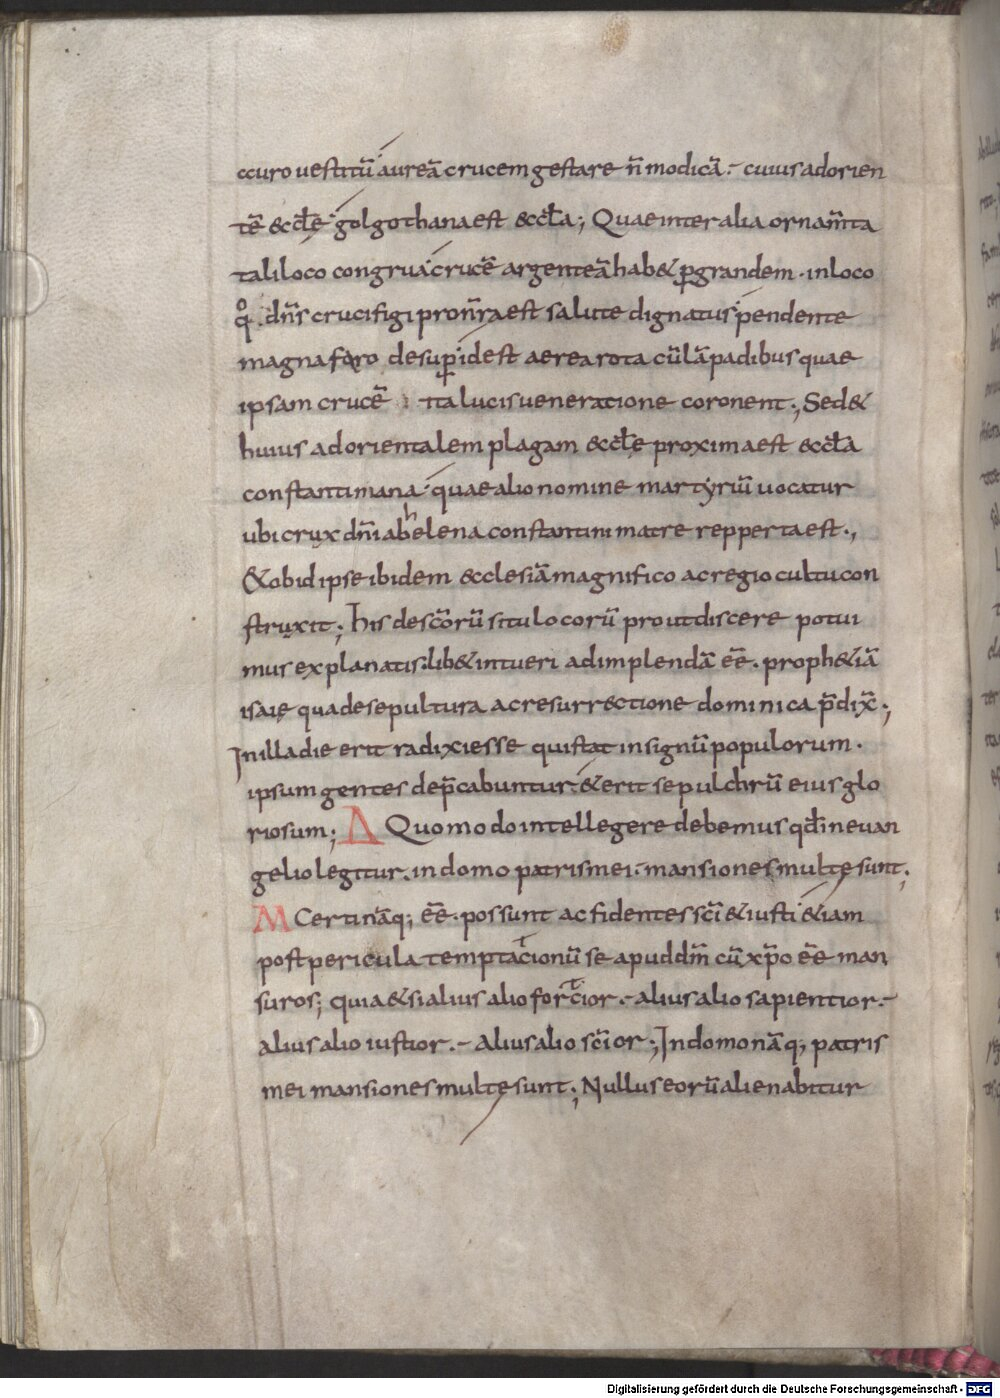 auro uestitū aureā crucem gestare n̄ modicā .- cuius ad orien
tē &ccl̄ę golgothana est &ccl̄a; Quae inter alia ornam̄ta
tali loco congrua crucē argenteā hab& ꝑgrandem . in loco
qͦ dn̄s crucifigi pro nr̄a est salute dignatus pendente
magna faro desuꝑ id est aerea rota cū lāpadibus quae
ipsam crucē ita lucis ueneratione coronent; Sed &
huius ad orientalem plagam &ccl̄ę proxima est &ccl̄a
constantiniana quae alio nomine martyriū uocatur
ubi crux dn̄i ab helena constantini matre repperta est .,
& ob id ipse ibidem ecclesiā magnifico ac regio cultu con
struxit; His desc̄orū situ locorū prout discere potui
mus explanatis. lib& intueri adimplendā eē. proph&iā
isaię qua de sepultura ac resurrectione dominica p̄dix̄.,
In illa die erit radix iesse qui stat in signū populorum .
ipsum gentes dep̄cabuntur. & erit sepulchrū eius glo
riosum; Δ Quomodo intellegere debemus qd̄ in euan
gelio legitur. in domo patris mei .- mansiones multę sunt.,
M Certi nāq; eē. possunt ac fidentes sc̄i & iusti etiam
post pericula temptacionū se apud dm̄ cū xp̄o eē man
suros; quia & si alius alio forcior .- alius alio sapientior .-
alius alio iustior .- Alius alio sc̄ior; In domo nāq; patris
mei mansiones multę sunt; Nullus eorū alienabitur
Digitalisierung gefördert durch die Deutsche Forschungsgemeinschaft - DFG